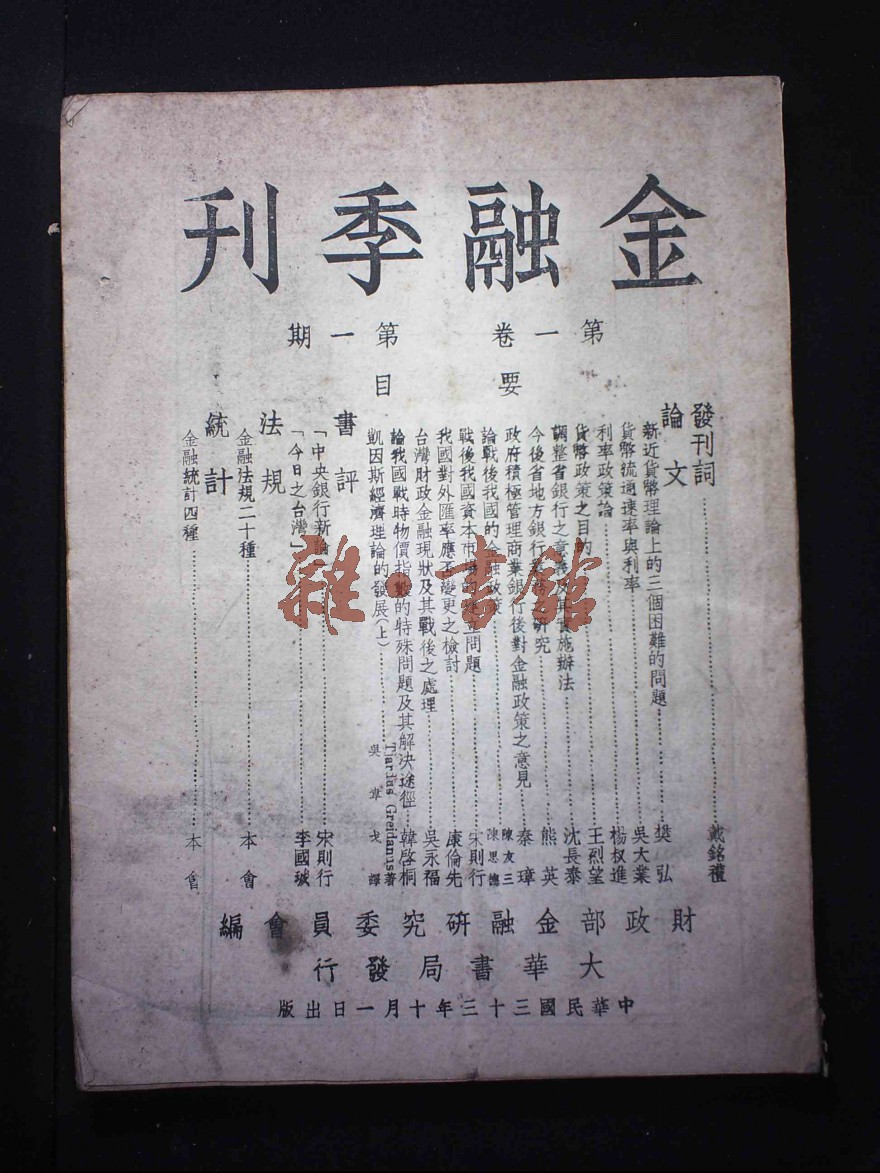 金融季刊
第一卷 第一期
要目
發刊詞……戴銘禮
論文
新近貨幣理論上的三個困難的問題……樊弘
貨幣流通速率與利率……吳大業
利率政策論……楊权進
貨幣政策之目的……王烈望
調整省銀行之意義及其實施辦法……沈長泰
今後省地方銀行業務研究……熊英
政府積極管理商業銀行後對金融政策之意見……秦璋
論戰後我國的金融政策……陳友三 陳思德
戰後我國資本市場的建立問題……宋則行
我國對外匯率應否變更之檢討……康倫先
台灣財政金融現狀及其戰後之處理……吳永福
論我國戰時物價指數的特殊問題及其解決途徑……韓啓桐
凱因斯經濟理論的發展(上)……Tjardus Greidanus著 吳韋戈譯
書評
「中央銀行新論」……宋則行
「今日之台灣」……李國珷
法規
金融法規二十種……本會
統計
金融統計四種……本會
財政部金融研究委員會編
大華書局發行
中華民國三十三年十月一日出版
雜·書館